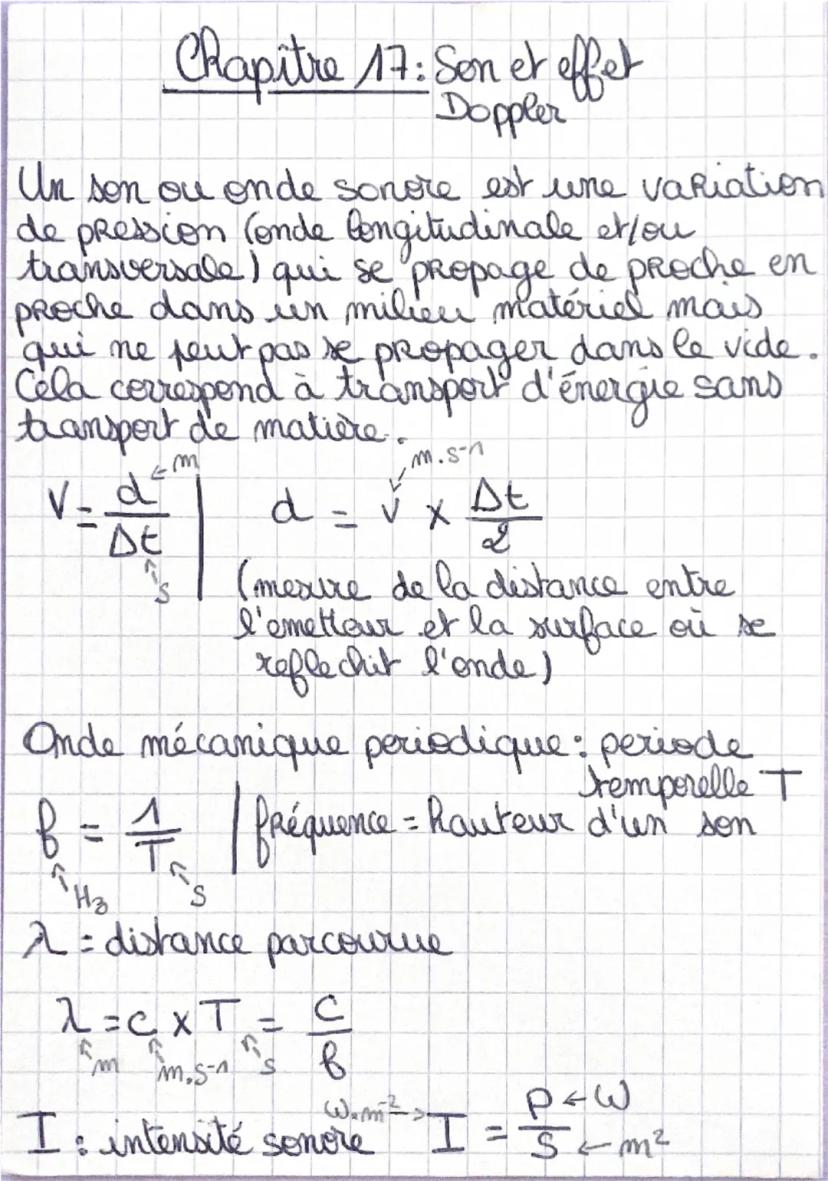 Chapître 17: Son et effet
Doppler
Un son ou onde sonore est une variation
de pression (onde longitudinale et/ou
transversale) qui se propage de proche en
proche dans un milieu matériel mais
qui ne peut pas se propager dans le vide.
Cela correspond à transport d'énergie sans
transport de matière.
V = d ← m / Δt ← s | d = v ← m.s-1 × Δt/2
(mesure de la distance entre
l'emetteur et la surface où se
reflechit l'onde)
Onde mécanique periodique: periode
temporelle T
f = 1/T | fréquence = hauteur d'un son
Hz s
λ = distance parcourue
λ = c × T = c/f
m m.s-1 s
I : intensité sonore W.m-2 → I = P ← W / S ← m²